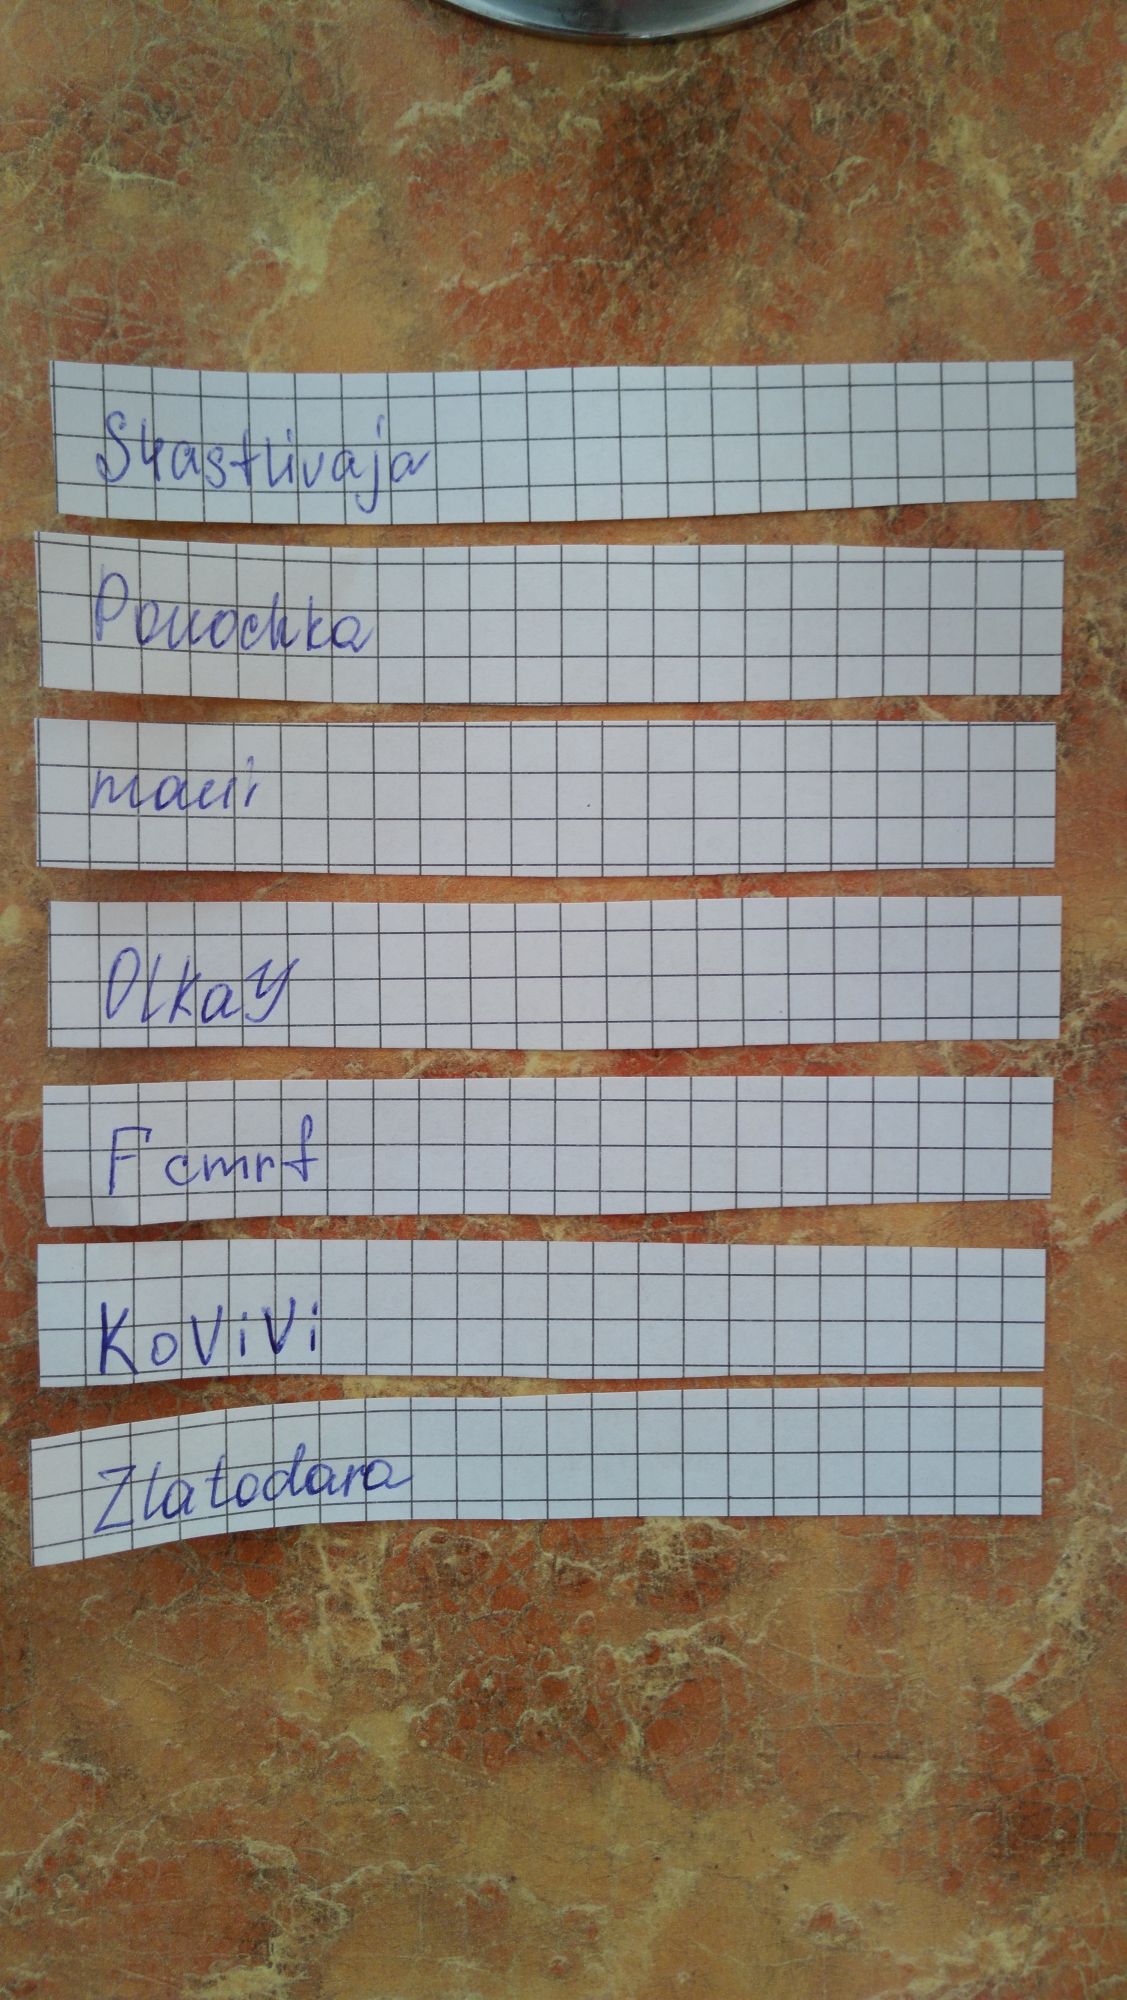 S4astlivaja
Ponochka
maui
OlkaY
Fcmrf
KoViVi
Zlatodara